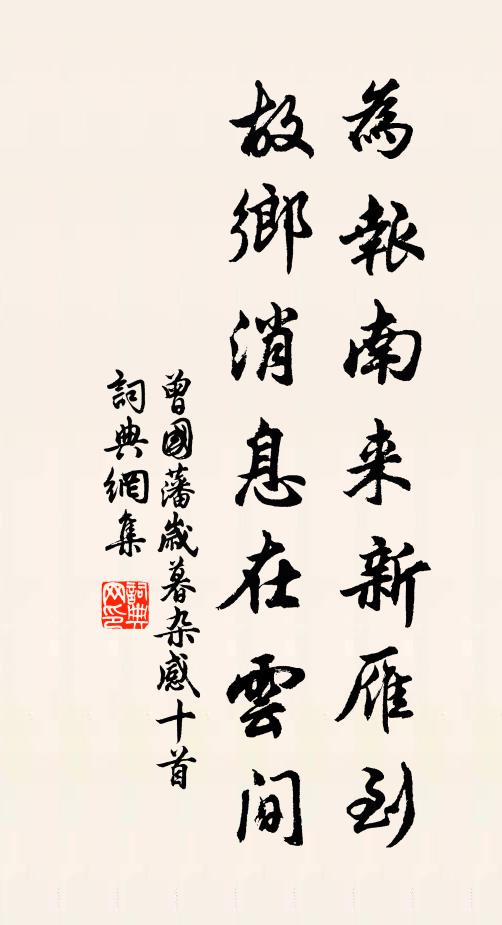 為報南来新雁到
故鄉消息在雲間
曾國藩歲暮杂感十首
詞典網集
詞典
网印